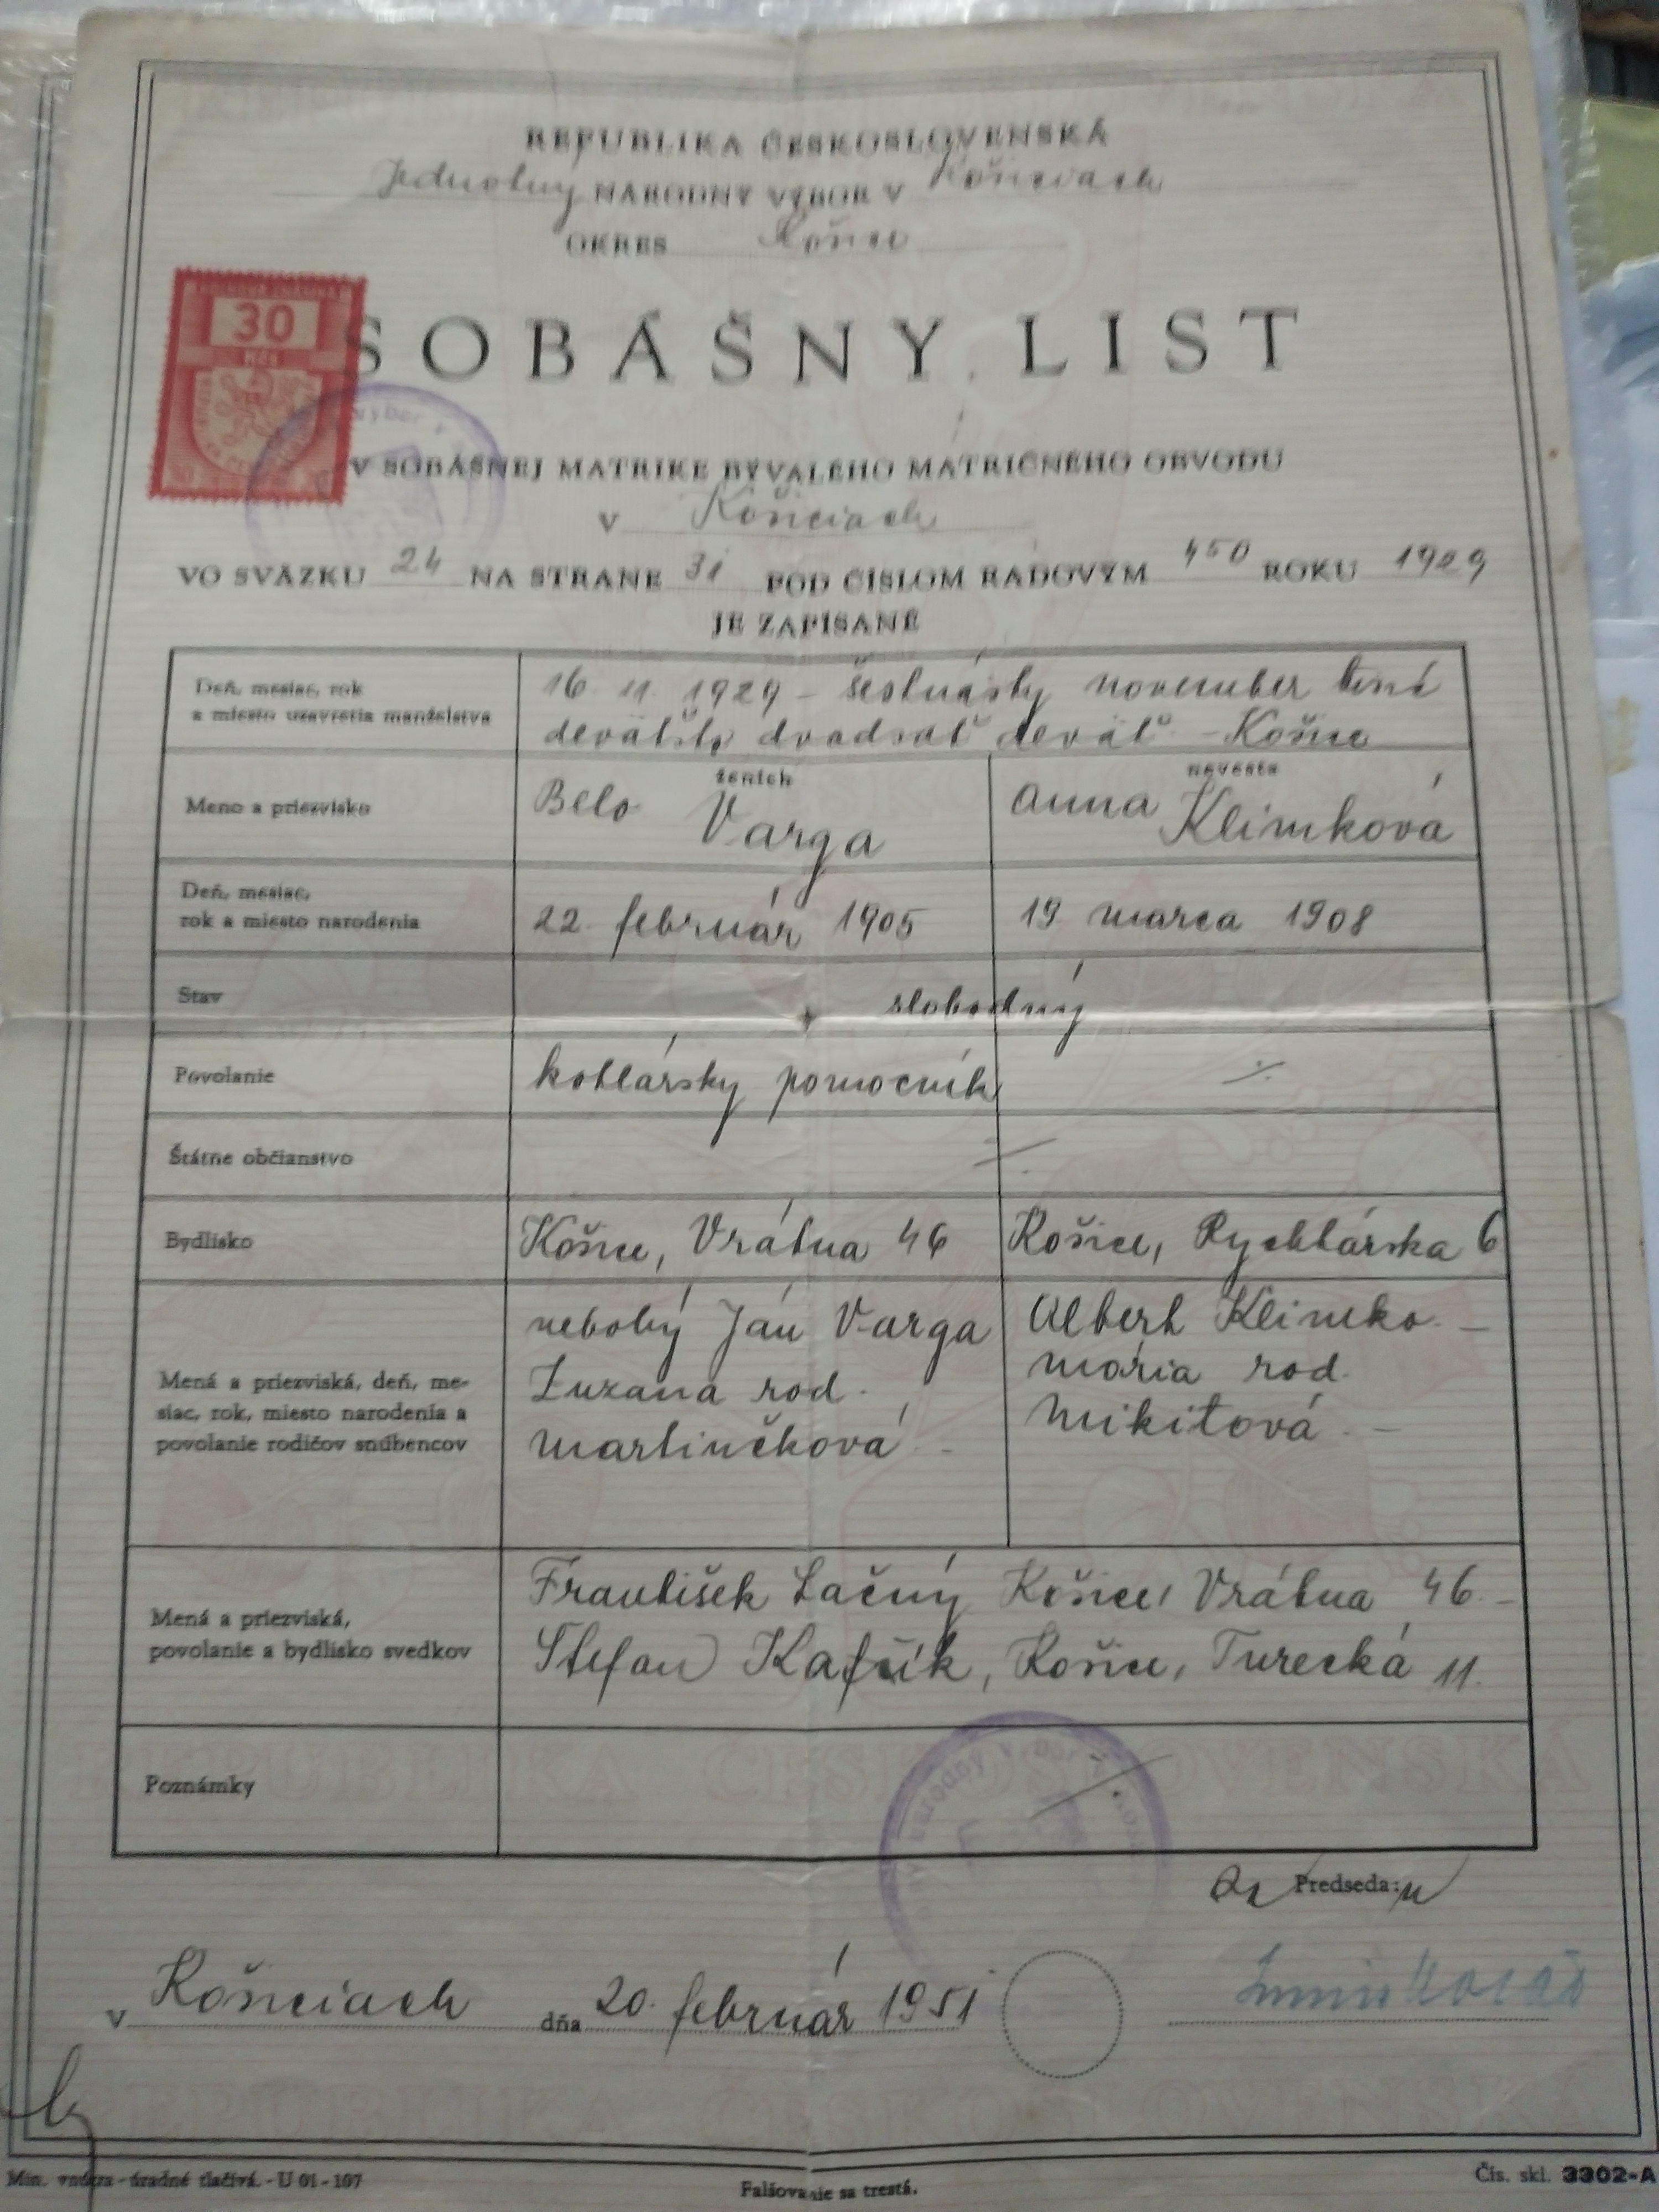 REPUBLIKA ČESKOSLOVENSKÁ
Jednotný NÁRODNÝ VÝBOR V Košiciach
OKRES Košice
30
Kčs
SOBÁŠNY LIST
V SOBÁŠNEJ MATRIKE BÝVALÉHO MATRIČNÉHO OBVODU
v Košiciach
VO SVÄZKU 24 NA STRANE 31 POD ČÍSLOM RADOVÝM 450 ROKU 1929
JE ZAPÍSANÉ
Deň, mesiac, rok
a miesto uzavretia manželstva
16. 11. 1929 – šestnásty november tisíc
deväťsto dvadsať deväť – Košice
ženich nevesta
Meno a priezvisko Belo Varga Anna Klimková
Deň, mesiac,
rok a miesto narodenia 22. február 1905 19 marca 1908
Stav slobodný
Povolanie kotlársky pomocník
Štátne občianstvo
Bydlisko Košice, Vrátna 46 Košice, Rychtárska 6
Mená a priezviská, deň, me-
siac, rok, miesto narodenia a
povolanie rodičov snúbencov
nebohý Ján Varga
Zuzana rod.
Martinčková –
Albert Klimko. –
Mária rod.
Mikitová. –
Mená a priezviská,
povolanie a bydlisko svedkov
František Lačný Košice, Vrátna 46. –
Štefan Kafčík, Košice, Turecká 11.
Poznámky
Predseda:
v Košiciach dňa 20. február 1951
Min. vnútra - úradné tlačivá. - U 01 - 107
Falšovanie sa trestá.
Čís. skl. 3302-A